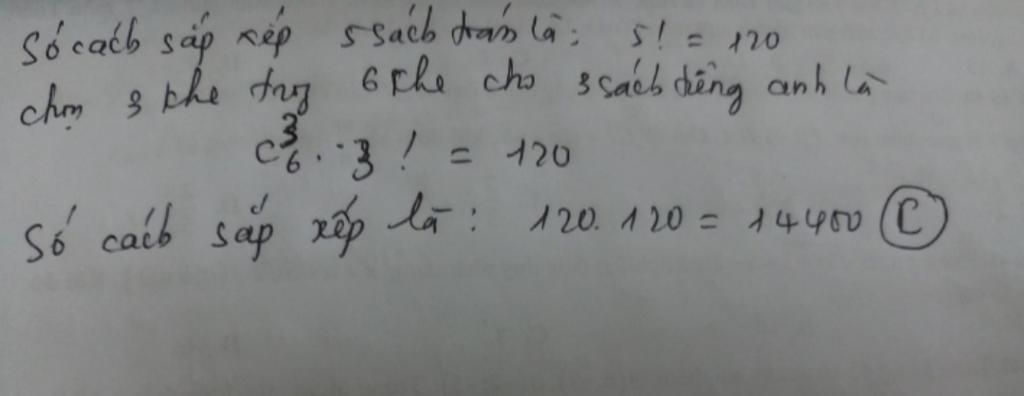 Số cách sắp xếp 5 sách toán là: 5! = 120
chọn 3 khe trong 6 khe cho 3 sách tiếng anh là
C³₆ . 3! = 120
Số cách sắp xếp là: 120.120 = 14400 C